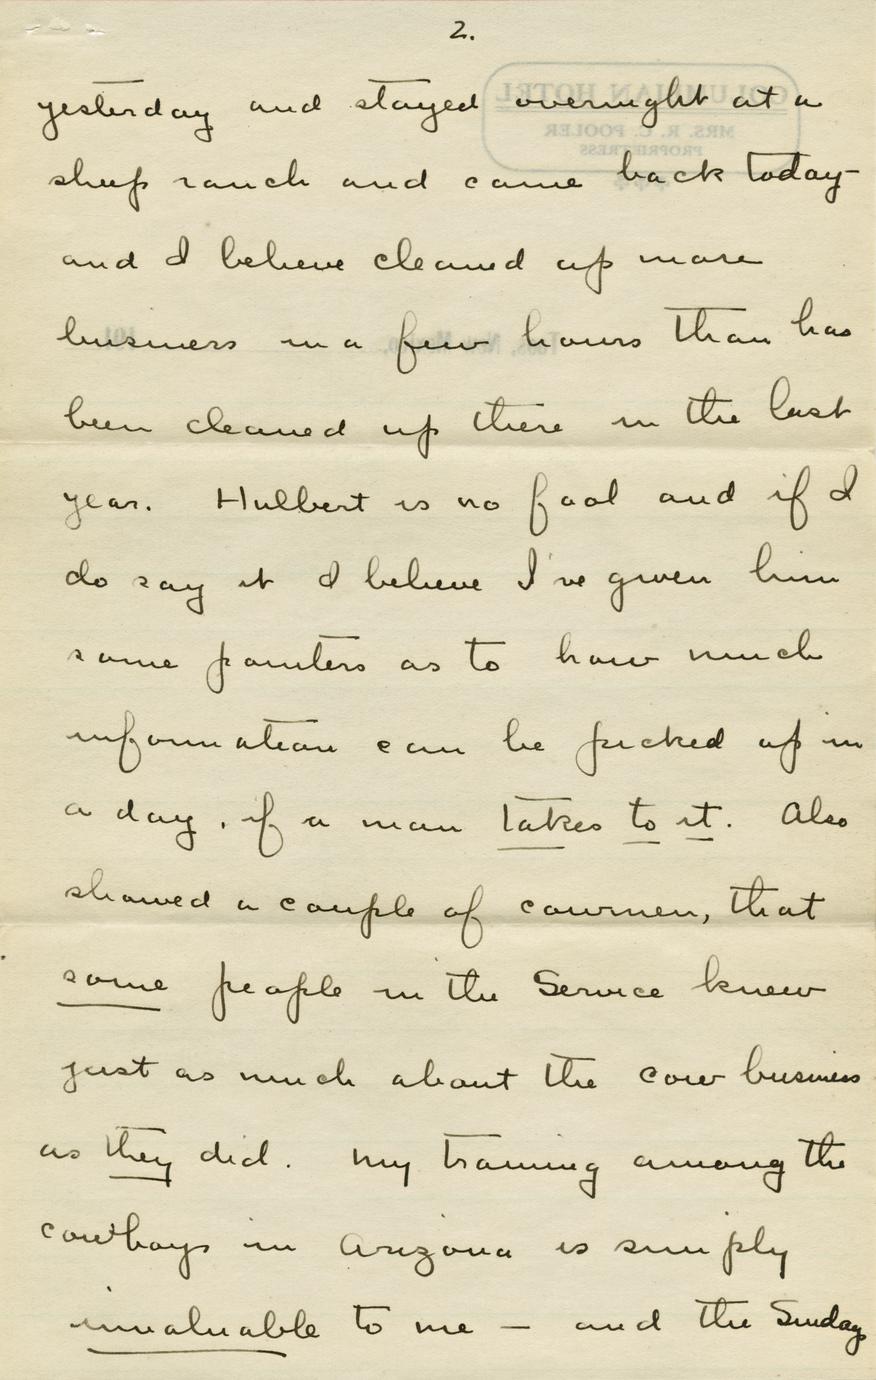 2.
COLUMBIAN HOTEL
MRS. R. C. POOLER
PROPRIETRESS
yesterday and stayed overnight at a
sheep ranch and came back today–
and I believe cleaned up more
Taos, New Mexico, 191
business in a few hours than has
been cleaned up there in the last
year. Hulbert is no fool and if I
do say it I believe I've given him
some pointers as to how much
information can be picked up in
a day, if a man takes to it. Also
showed a couple of cowmen, that
some people in the Service knew
just as much about the cow business
as they did. My training among the
cowboys in Arizona is simply
invaluable to me — and the Sunday